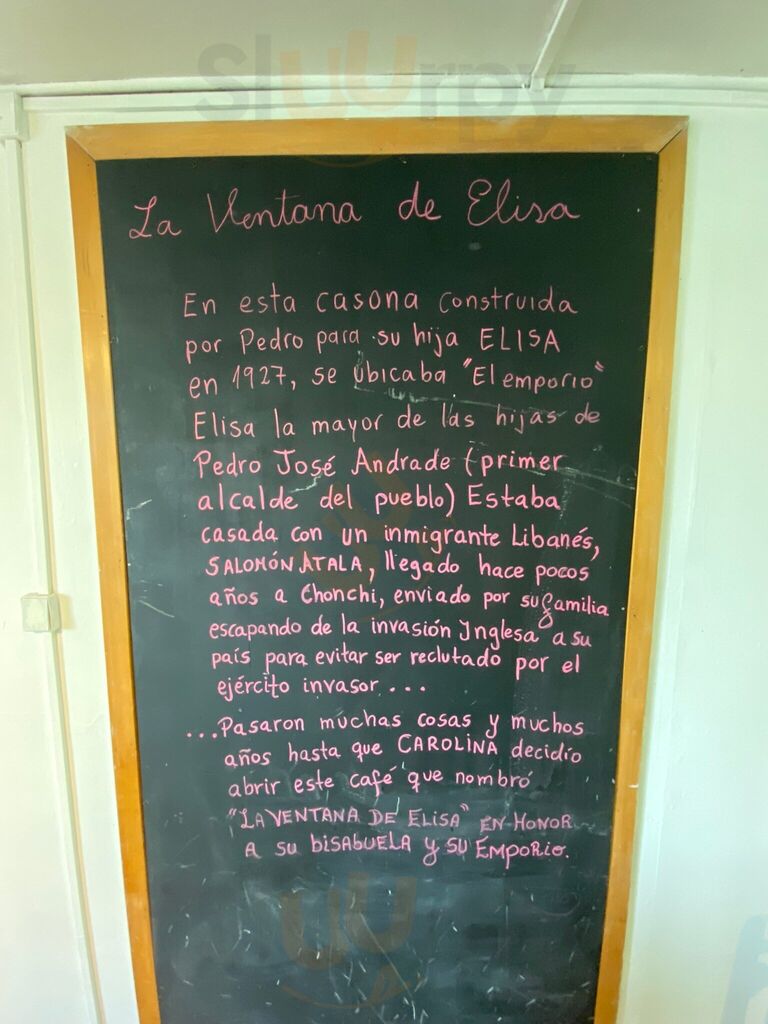 Sluurpy
La Ventana de Elisa
En esta casona construida
por Pedro para su hija ELISA
en 1927, se ubicaba "El emporio"
Elisa la mayor de las hijas de
Pedro José Andrade (primer
alcalde del pueblo) Estaba
casada con un inmigrante Libanés,
SALOMÓN ATALA, llegado hace pocos
años a Chonchi, enviado por su familia
escapando de la invasión Inglesa a su
país para evitar ser reclutado por el
ejército invasor...
...Pasaron muchas cosas y muchos
años hasta que CAROLINA decidió
abrir este café que nombró
"LA VENTANA DE ELISA" EN HONOR
A SU BISABUELA y SU EMPORIO.